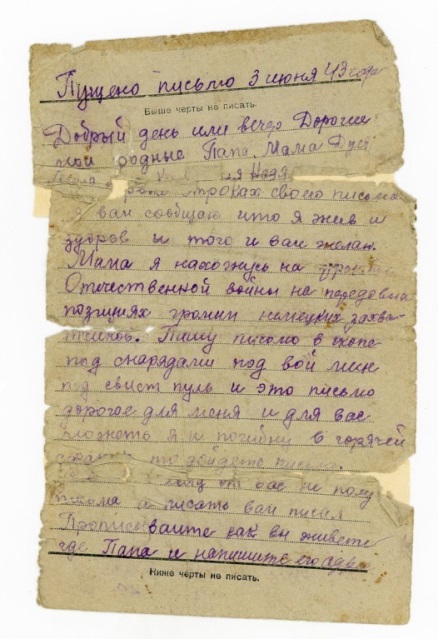 Пущено письмо 3 июня 43 года
Выше черты не писать.
Добрый день или вечер Дорогие
мои родные Папа, Мама Дуся
Надя
строках своего письма
я вам сообщаю что я жив и
здоров и того и вам желаю.
Мама я нахожусь на
Отечественной войны на передовых
позициях громим немецких захва-
тчиков. Пишу письмо в окопе
под снарядами под вой мин
под свист пуль и это письмо
дорогое для меня и для вас
может я и погибну в горячей
то дойдет письмо.
от вас не полу
письма а писать вам писал
Прописывайте как вы живете
где Папа и напишите его адре
Ниже черты не писать.